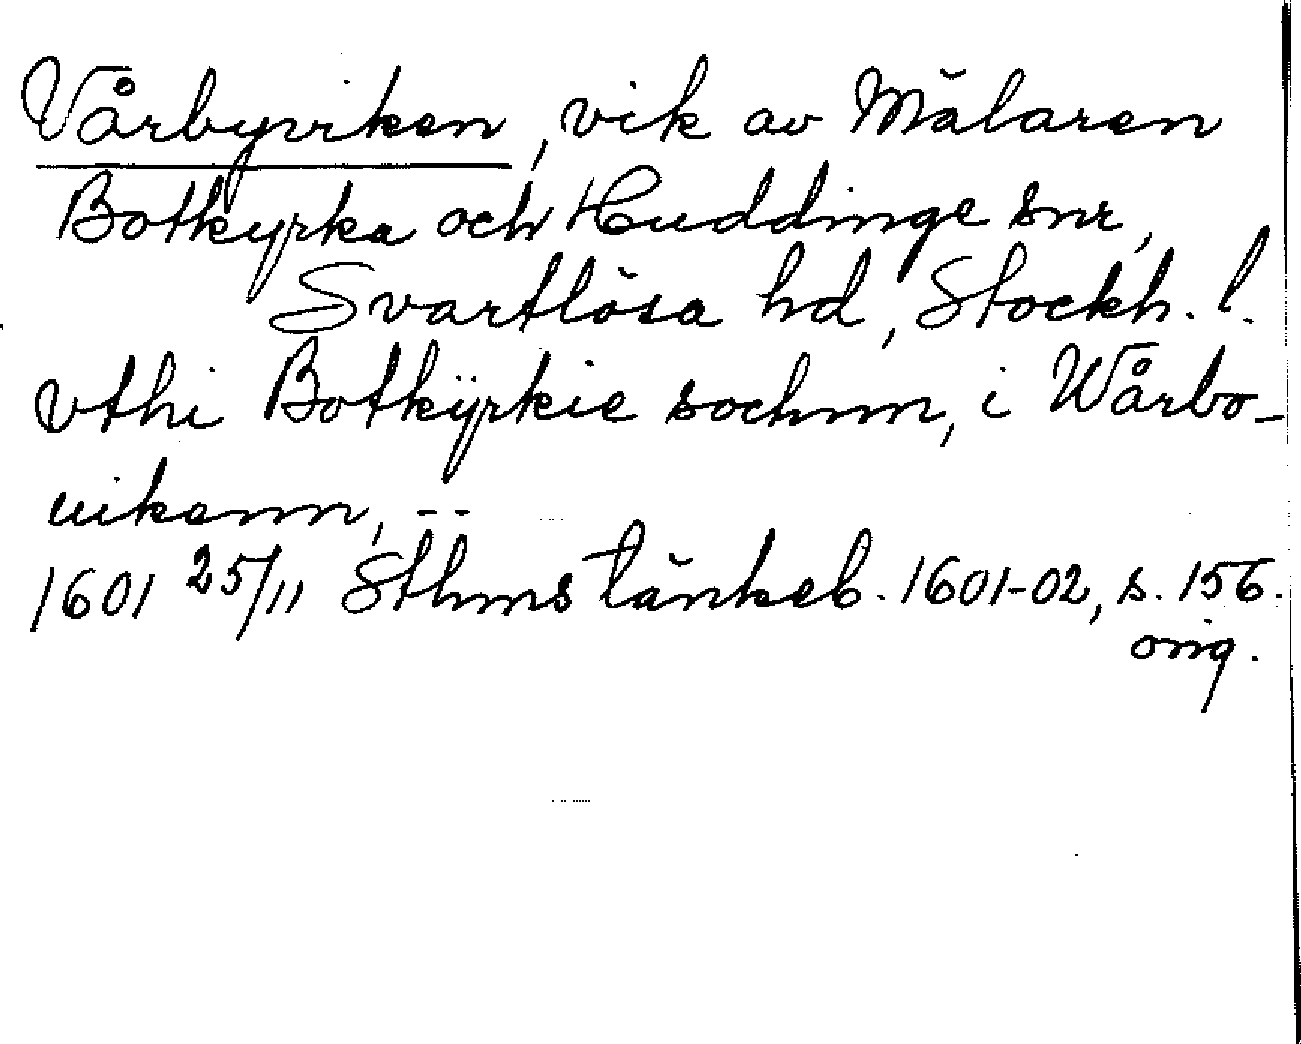 Vårbyviken, vik av Mälaren
Botkyrka och Huddinge snr,
Svartlösa hd, Stockh. l.
vthi Botkÿrkie sochnn, i Wårbo-
uikenn, --
1601 25/11 Sthms tänkeb. 1601-02, s. 156.
orig.